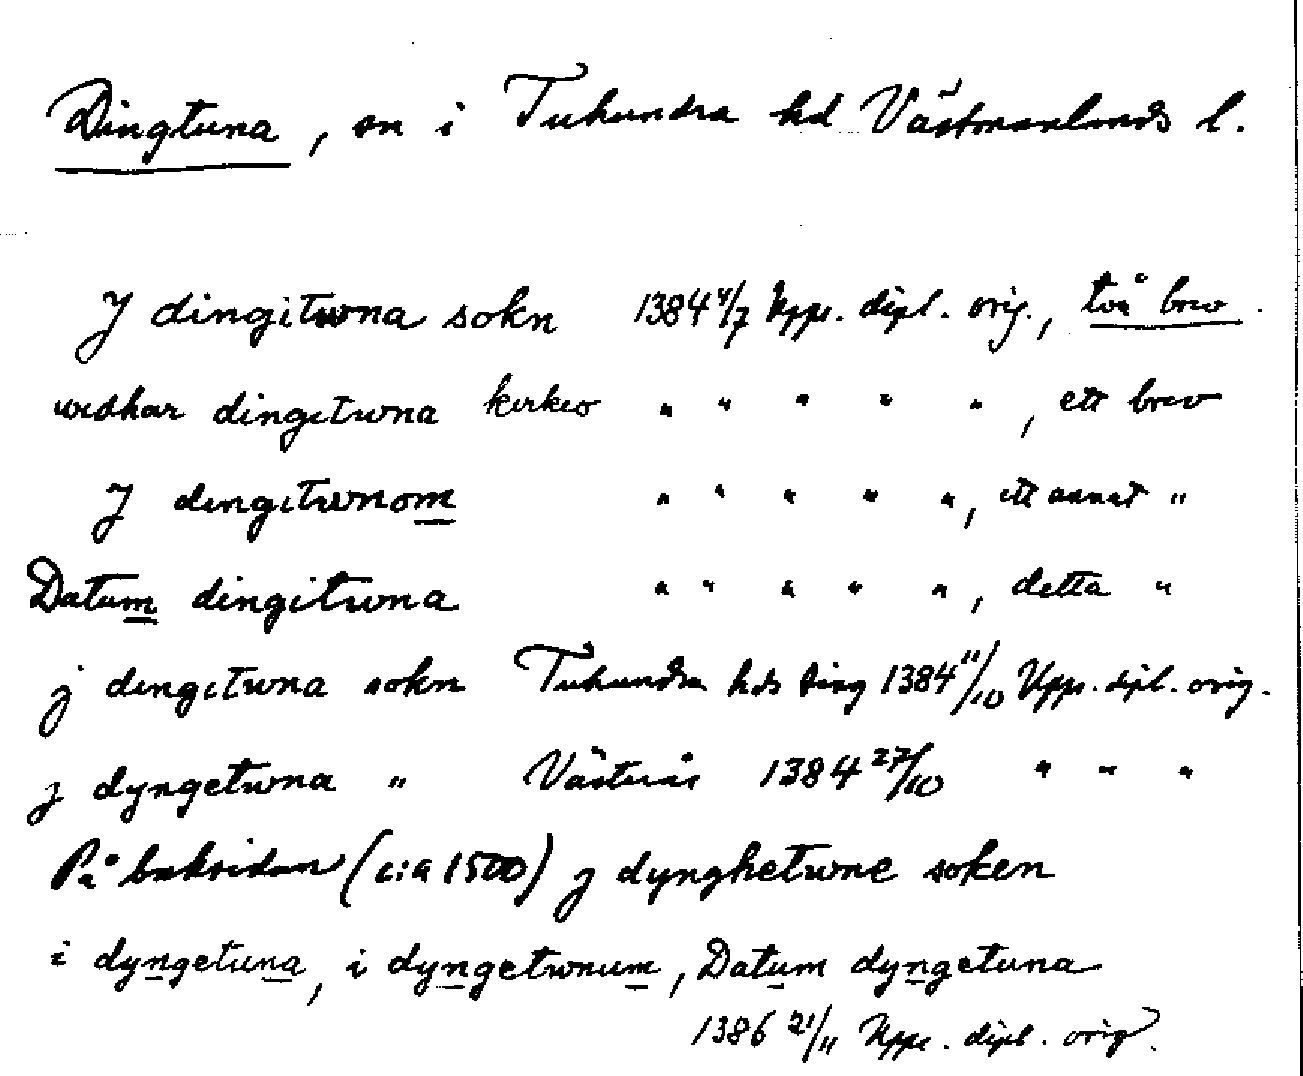 Dingtuna, sn i Tuhundra hd Västmanlands l.
J dingitwna sokn 1384 4/7 Upps. dipl. orig., två brev.
widhar dingitwna kirkio " " " " ", ett brev
J dingitwnom " " " " ", ett annat "
Datum dingitwna " " " " ", detta "
j dingitwna sokn Tuhundra hds ting 1384 11/10 Upps. dipl. orig.
j dyngetwna " Västerås 1384 27/10 " " "
På baksidan (c:a 1500) j dynghetwne soken
i dyngetuna, i dyngetwnum, Datum dyngetuna
1386 21/11 Upps. dipl. orig.